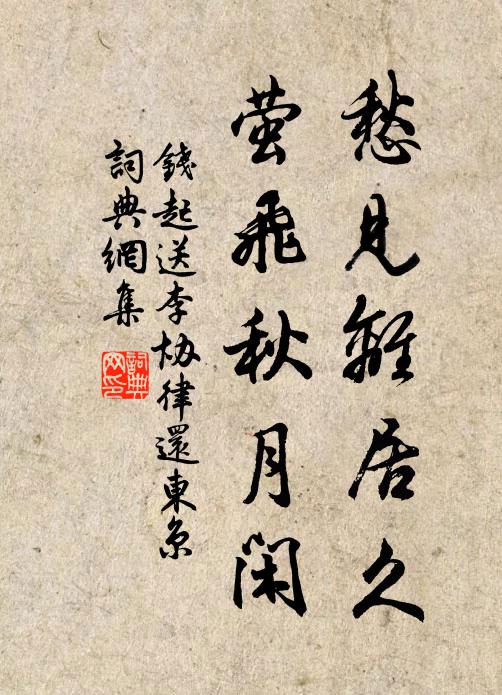 愁見離居久
萤飛秋月閑
錢起送李协律還東京
詞典網集
詞典网印